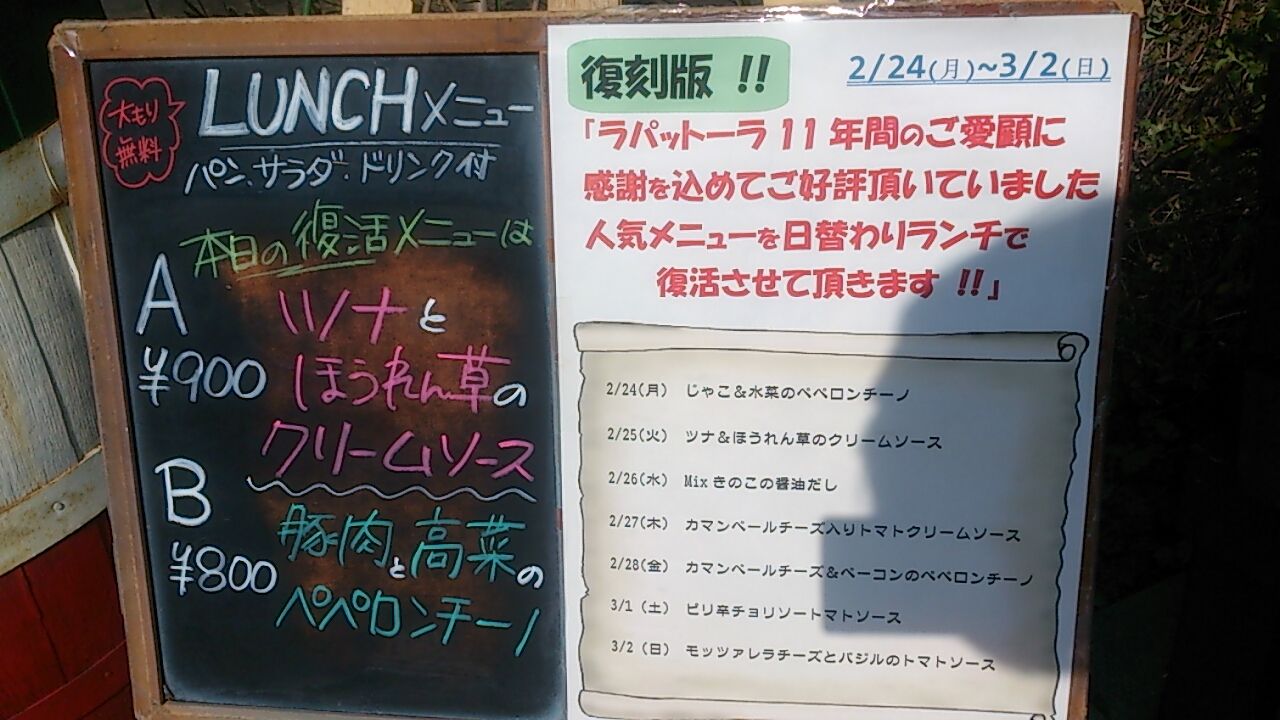 大もり
無料
LUNCHメニュー
パン、サラダ、ドリンク付
本日の復活メニューは
A
¥900
ツナと
ほうれん草の
クリームソース
B
¥800
豚肉と高菜の
ペペロンチーノ
復刻版 !!
2/24(月)~3/2(日)
「ラパットーラ 11 年間のご愛顧に
感謝を込めてご好評頂いていました
人気メニューを日替わりランチで
復活させて頂きます !!」
2/24(月) じゃこ&水菜のペペロンチーノ
2/25(火) ツナ&ほうれん草のクリームソース
2/26(水) Mix きのこの醤油だし
2/27(木) カマンベールチーズ入りトマトクリームソース
2/28(金) カマンベールチーズ&ベーコンのペペロンチーノ
3/1 (土) ピリ辛チョリソートマトソース
3/2 (日) モッツァレラチーズとバジルのトマトソース